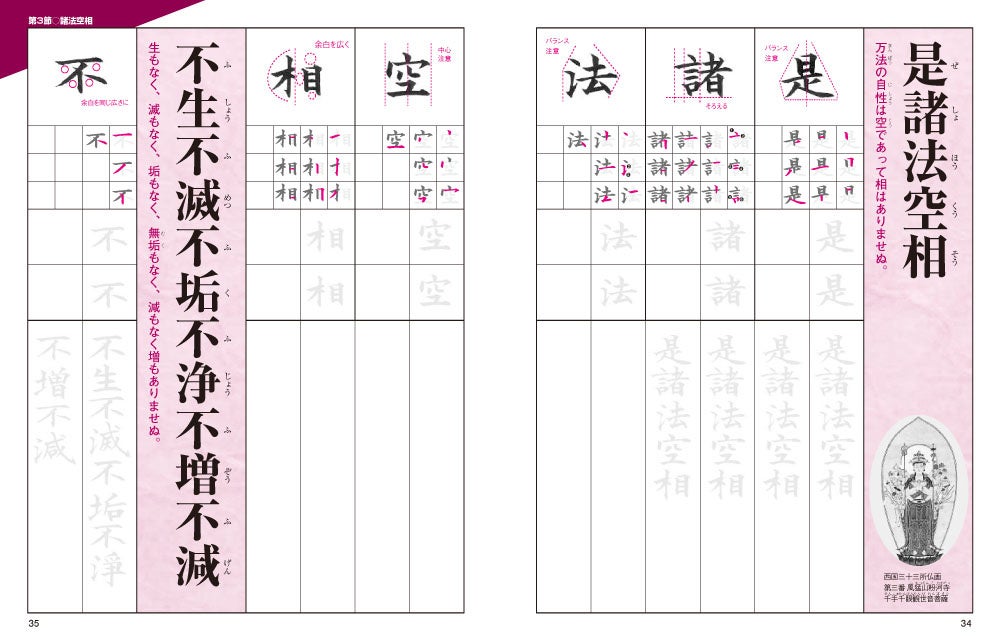 第3節○諸法空相
是諸法空相
ぜ しょ ほう くう そう
万法の自性は空であって相はありませぬ。
西国三十三所仏画
第三番 風猛山粉河寺
千手千眼観世音菩薩
バランス注意
是
そろえる
諸
バランス注意
法
是
諸
法
是
諸
法
是諸法空相
是諸法空相
是諸法空相
是諸法空相
34
中心注意
空
余白を広く
相
空
相
空
相
不生不滅不垢不浄不増不減
ふ しょう ふ めつ ふ く ふ じょう ふ ぞう ふ げん
生もなく、滅もなく、垢もなく、無垢もなく、減もなく増もありませぬ。
不
余白を同じ広さに
不
不
不生不滅不垢不淨
不増不減
35